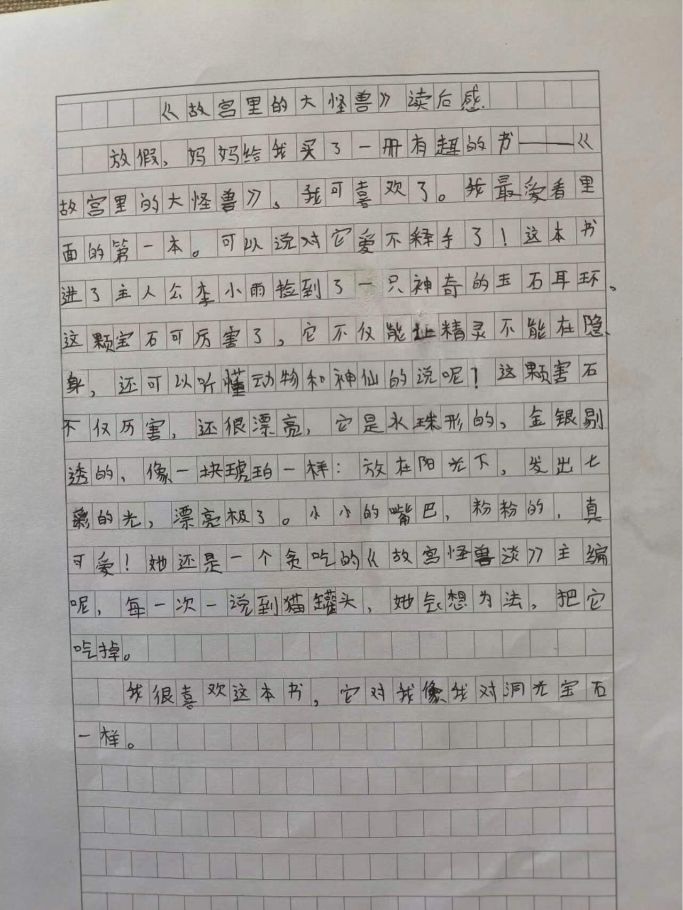 《故宫里的大怪兽》读后感
放假，妈妈给我买了一册有趣的书——《
故宫里的大怪兽》，我可喜欢了。我最爱看里
面的第一本。可以说对它爱不释手了！这本书
进了主人公李小雨捡到了一只神奇的玉石耳环，
这颗宝石可厉害了，它不仅能让精灵不能在隐
身，还可以听懂动物和神仙的说呢！这颗害石
不仅厉害，还很漂亮，它是水珠形的，金银剔
透的，像一块琥珀一样：放在阳光下，发出七
彩的光，漂亮极了。小小的嘴巴，粉粉的，真
可爱！她还是一个贪吃的《故宫怪兽谈》主编
呢，每一次一说到猫罐头，她会想为法，把它
吃掉。
我很喜欢这本书，它对我像我对洞光宝石
一样。